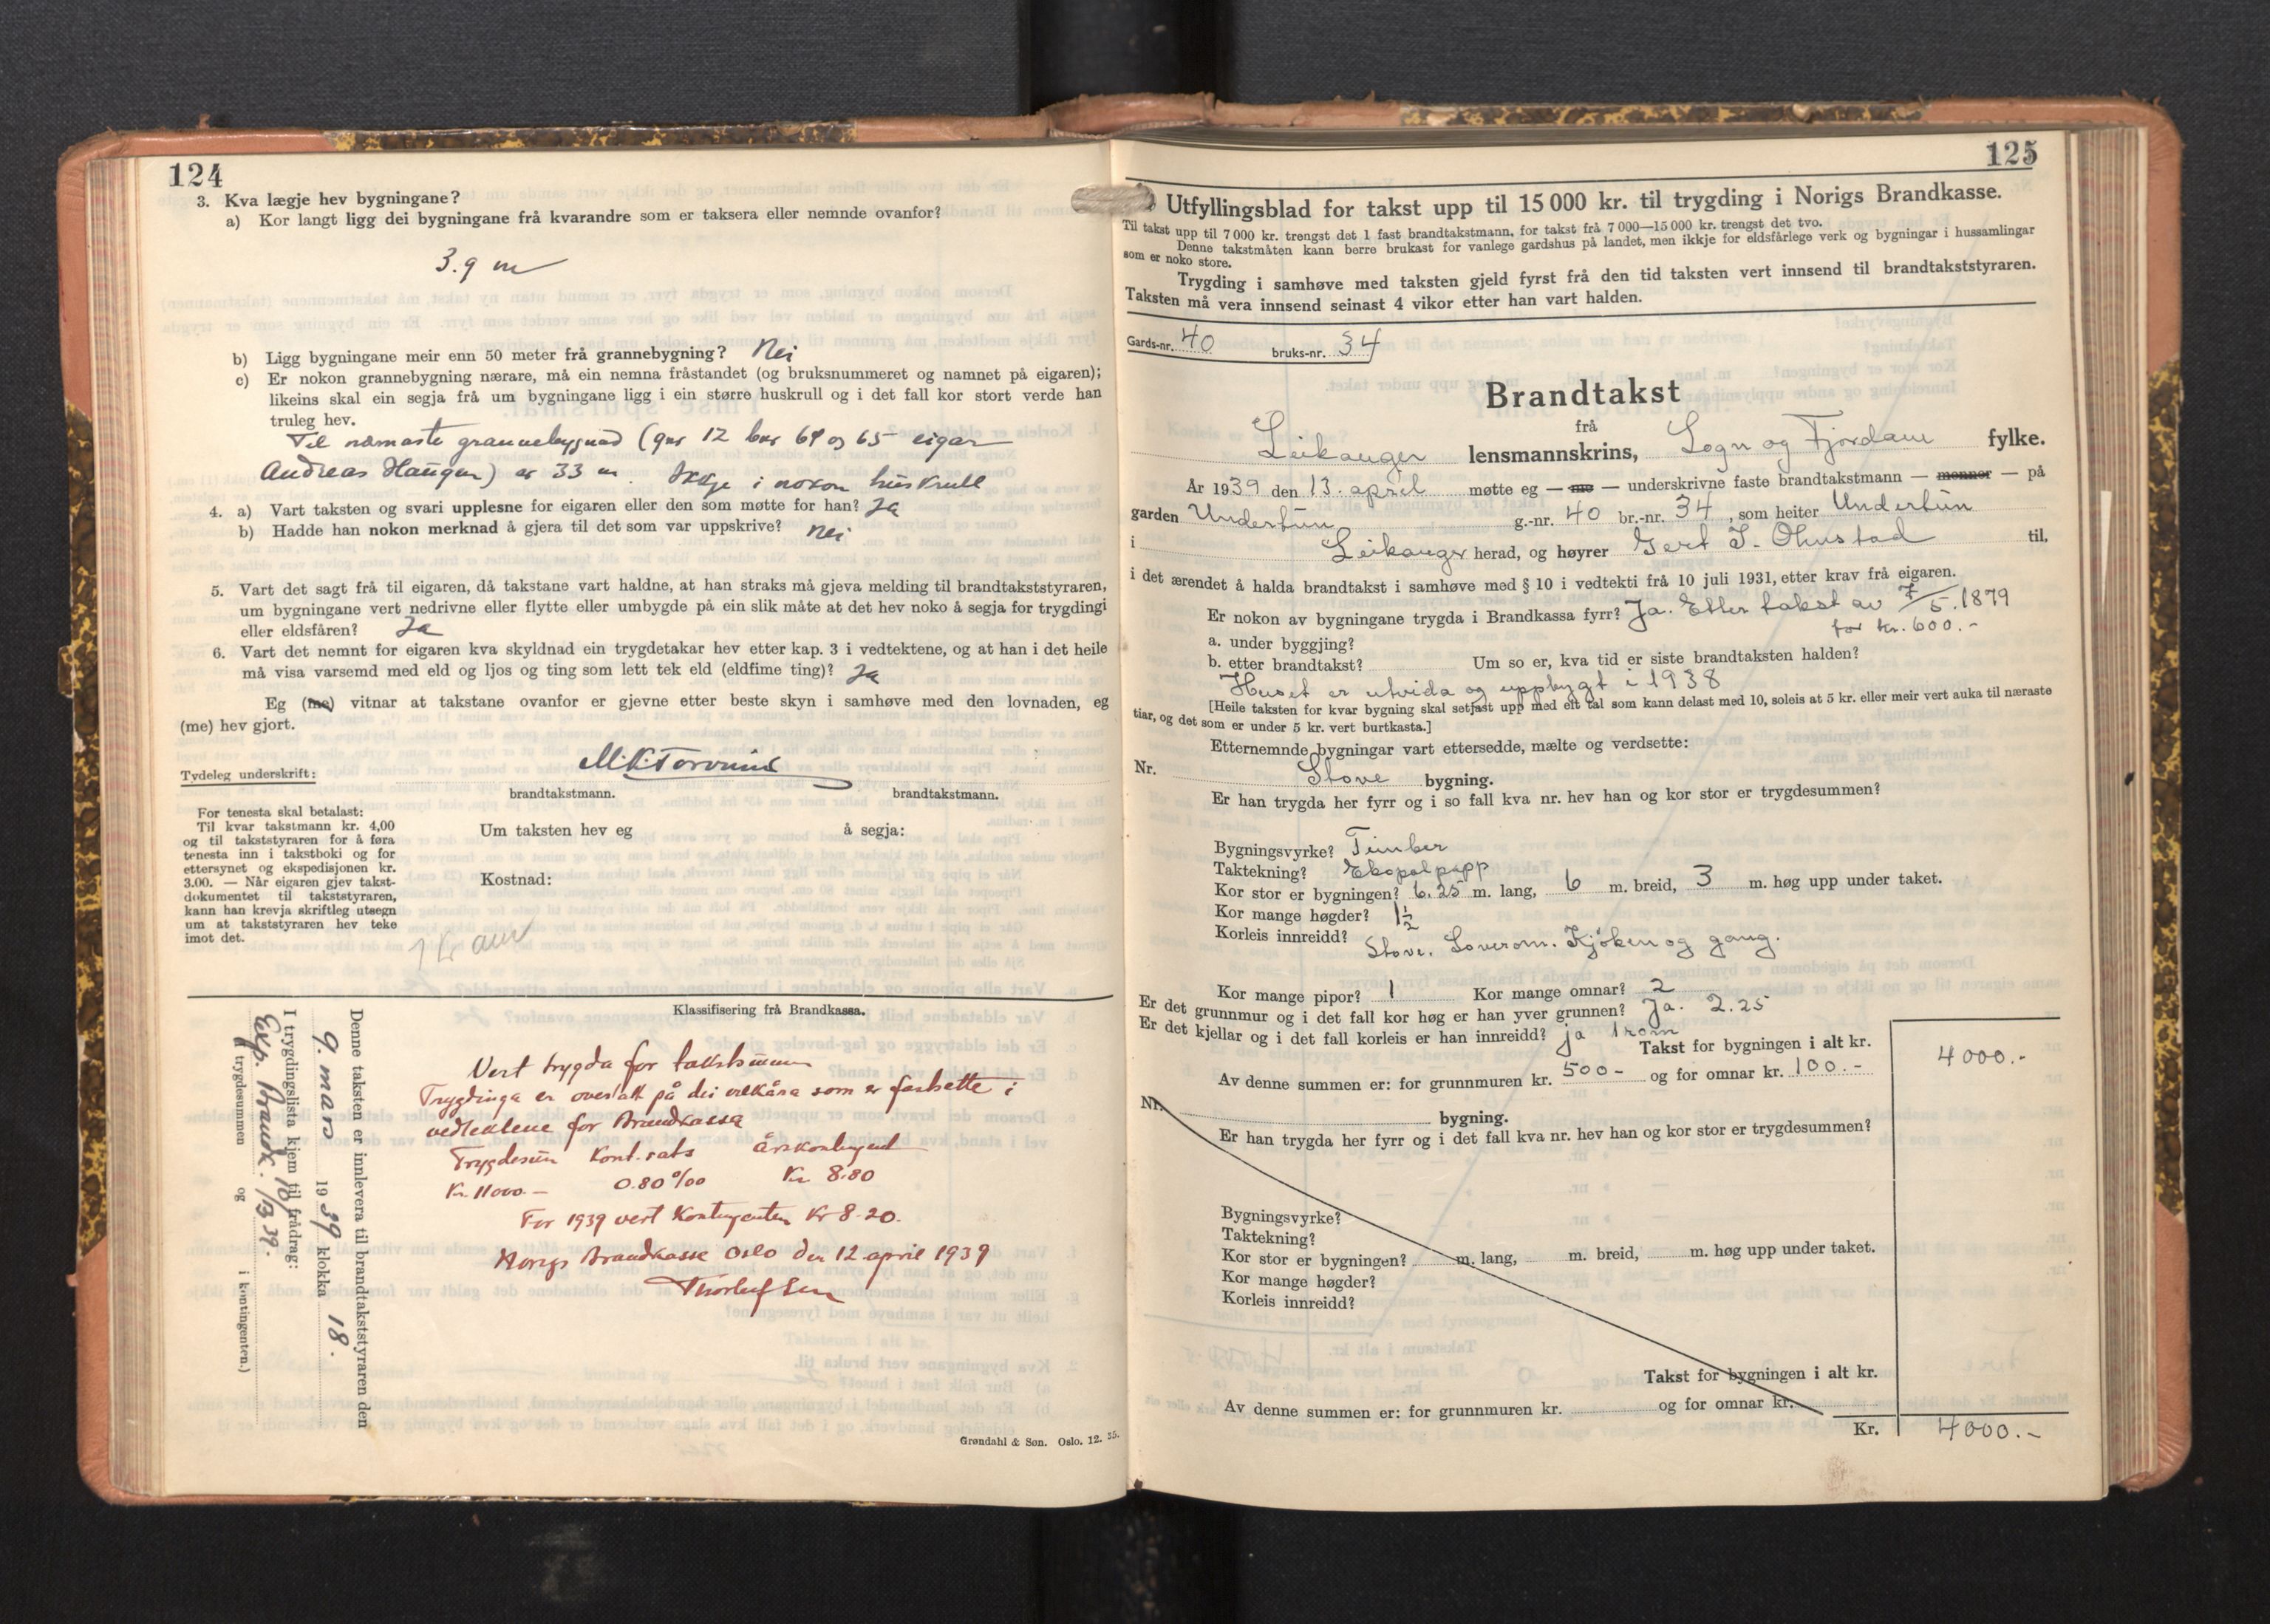 124
3. Kva lægje hev bygningane?
a) Kor langt ligg dei bygningane frå kvarandre som er taksera eller nemnde ovanfor?
3.9 m
b) Ligg bygningane meir enn 50 meter frå grannebygning? Nei
c) Er nokon grannebygning nærare, må ein nemna fråstandet (og bruksnummeret og namnet på eigaren);
likeins skal ein segja frå um bygningane ligg i ein større huskrull og i det fall kor stort verde han
truleg hev.
Til nærmaste grannebygnad (gnr 12 bnr 64 og 65 eigar
Andreas Haugen) er 33 m. Ikkje i nokon huskrull
4. a) Vart taksten og svari upplesne for eigaren eller den som møtte for han? Ja
b) Hadde han nokon merknad å gjera til det som var uppskrive? Nei
5. Vart det sagt frå til eigaren, då takstane vart haldne, at han straks må gjeva melding til brandtakststyraren,
um bygningane vert nedrivne eller flytte eller umbygde på ein slik måte at det hev noko å segja for trygdingi
eller eldsfåren? Ja
6. Vart det nemnt for eigaren kva skyldnad ein trygdetakar hev etter kap. 3 i vedtektene, og at han i det heile
må visa varsemd med eld og ljos og ting som lett tek eld (eldfime ting)? Ja
Eg (me) vitnar at takstane ovanfor er gjevne etter beste skyn i samhøve med den lovnaden, eg
(me) hev gjort.
Tydeleg underskrift:
brandtakstmann. brandtakstmann.
For tenesta skal betalast:
Til kvar takstmann kr. 4,00
og til takststyraren for å føra
tenesta inn i takstboki og for
ettersynet og ekspedisjonen kr.
3.00. — Når eigaren gjev takst-
dokumentet til takststyraren,
kann han krevja skriftleg utsegn
um at takststyraren hev teke
imot det.
Um taksten hev eg å segja:
Kostnad:
Klassifisering frå Brandkassa.
Vert trygda for takstsummen
Trygdinga er overtatt på dei vilkåra som er fastsette i
vedtektene for Brandkassa
Trygdesum Kont.sats Årskontingent
Kr. 11000.- 0.80 ‰ Kr 8.80
For 1939 vert kontingenten Kr 8.20.
Norigs Brandkasse Oslo den 12 april 1939
Denne taksten er innlevera til brandtakststyraren den
9. mars 1939 klokka 18.
I trygdingslista kjem til frådrag:
(i trygdesummen og i kontingenten.)
Grøndahl & Søn. Oslo. 12. 35.
125
Utfyllingsblad for takst upp til 15 000 kr. til trygding i Norigs Brandkasse.
Til takst upp til 7 000 kr. trengst det 1 fast brandtakstmann, for takst frå 7 000—15 000 kr. trengst det tvo.
Denne takstmåten kann berre brukast for vanlege gardshus på landet, men ikkje for eldsfårlege verk og bygningar i hussamlingar
som er noko store.
Trygding i samhøve med taksten gjeld fyrst frå den tid taksten vert innsend til brandtakststyraren.
Taksten må vera innsend seinast 4 vikor etter han vart halden.
Gards-nr. 40 bruks-nr. 34
Brandtakst
frå
Leikanger lensmannskrins, Sogn og Fjordane fylke.
År 1939 den 13. april møtte eg — me — underskrivne faste brandtakstmann — menner — på
garden Undertun g.-nr. 40 br.-nr. 34, som heiter Undertun
i Leikanger herad, og høyrer Gert J. Ohnstad til,
i det ærendet å halda brandtakst i samhøve med § 10 i vedtekti frå 10 juli 1931, etter krav frå eigaren.
Er nokon av bygningane trygda i Brandkassa fyrr? Ja. Etter takst av 7/5.1879
for kr. 600.-
a. under byggjing?
b. etter brandtakst? Um so er, kva tid er siste brandtaksten halden?
Huset er utvida og uppbygt i 1938
[Heile taksten for kvar bygning skal setjast upp med eit tal som kann delast med 10, soleis at 5 kr. eller meir vert auka til næraste
tiar, og det som er under 5 kr. vert burtkasta.]
Etternemnde bygningar vart ettersedde, mælte og verdsette:
Nr. Stove bygning.
Er han trygda her fyrr og i so fall kva nr. hev han og kor stor er trygdesummen?
Bygningsvyrke? Timber
Taktekning? Ekopalpapp
Kor stor er bygningen? 6.25 m. lang, 6 m. breid, 3 m. høg upp under taket.
Kor mange høgder? 1½
Korleis innreidd? Stove. Soverom. Kjøken og gang.
Kor mange pipor? 1 Kor mange omnar? 2
Er det grunnmur og i det fall kor høg er han yver grunnen? Ja. 2.25
Er det kjellar og i det fall korleis er han innreidd? ja 1 rom
Takst for bygningen i alt kr. 4000.-
Av denne summen er: for grunnmuren kr. 500- og for omnar kr. 100.-
Nr. bygning.
Er han trygda her fyrr og i det fall kva nr. hev han og kor stor er trygdesummen?
Bygningsvyrke?
Taktekning?
Kor stor er bygningen? m. lang, m. breid, m. høg upp under taket.
Kor mange høgder?
Korleis innreidd?
Takst for bygningen i alt kr.
Av denne summen er: for grunnmuren kr. og for omnar kr.
Kr. 4000.-